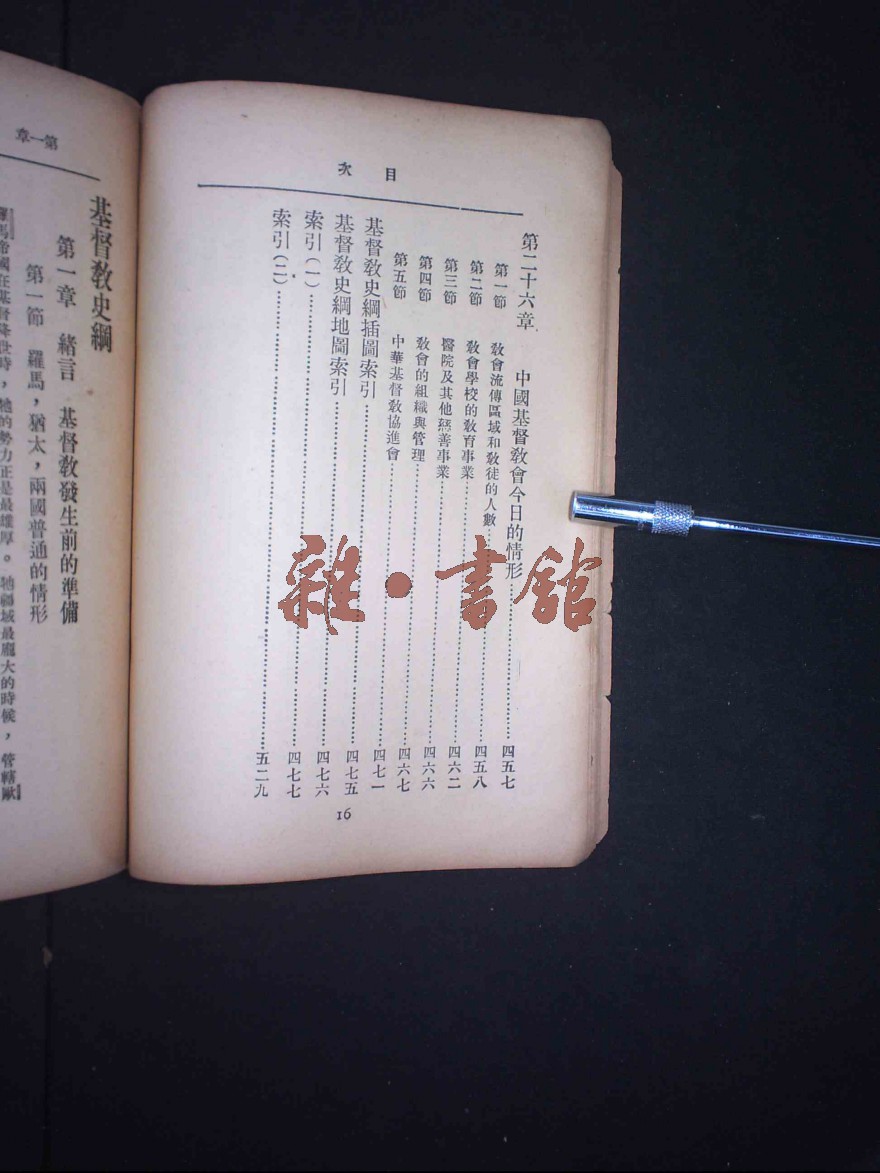 目次
第二十六章　中國基督教會今日的情形……四五七
第一節　教會流傳區域和教徒的人數……四五八
第二節　教會學校的教育事業……四六二
第三節　醫院及其他慈善事業……四六六
第四節　教會的組織與管理……四六七
第五節　中華基督教協進會……四七一
基督教史綱插圖索引……四七五
基督教史綱地圖索引……四七六
索引(一)……四七七
索引(二)……五二九
16
第一章
基督教史綱
第一章　緒言　基督教發生前的準備
第一節　羅馬，猶太，兩國普通的情形
羅馬帝國在基督降世時，牠的勢力正是最雄厚。牠疆域最龐大的時候，管轄歐
雜·書館